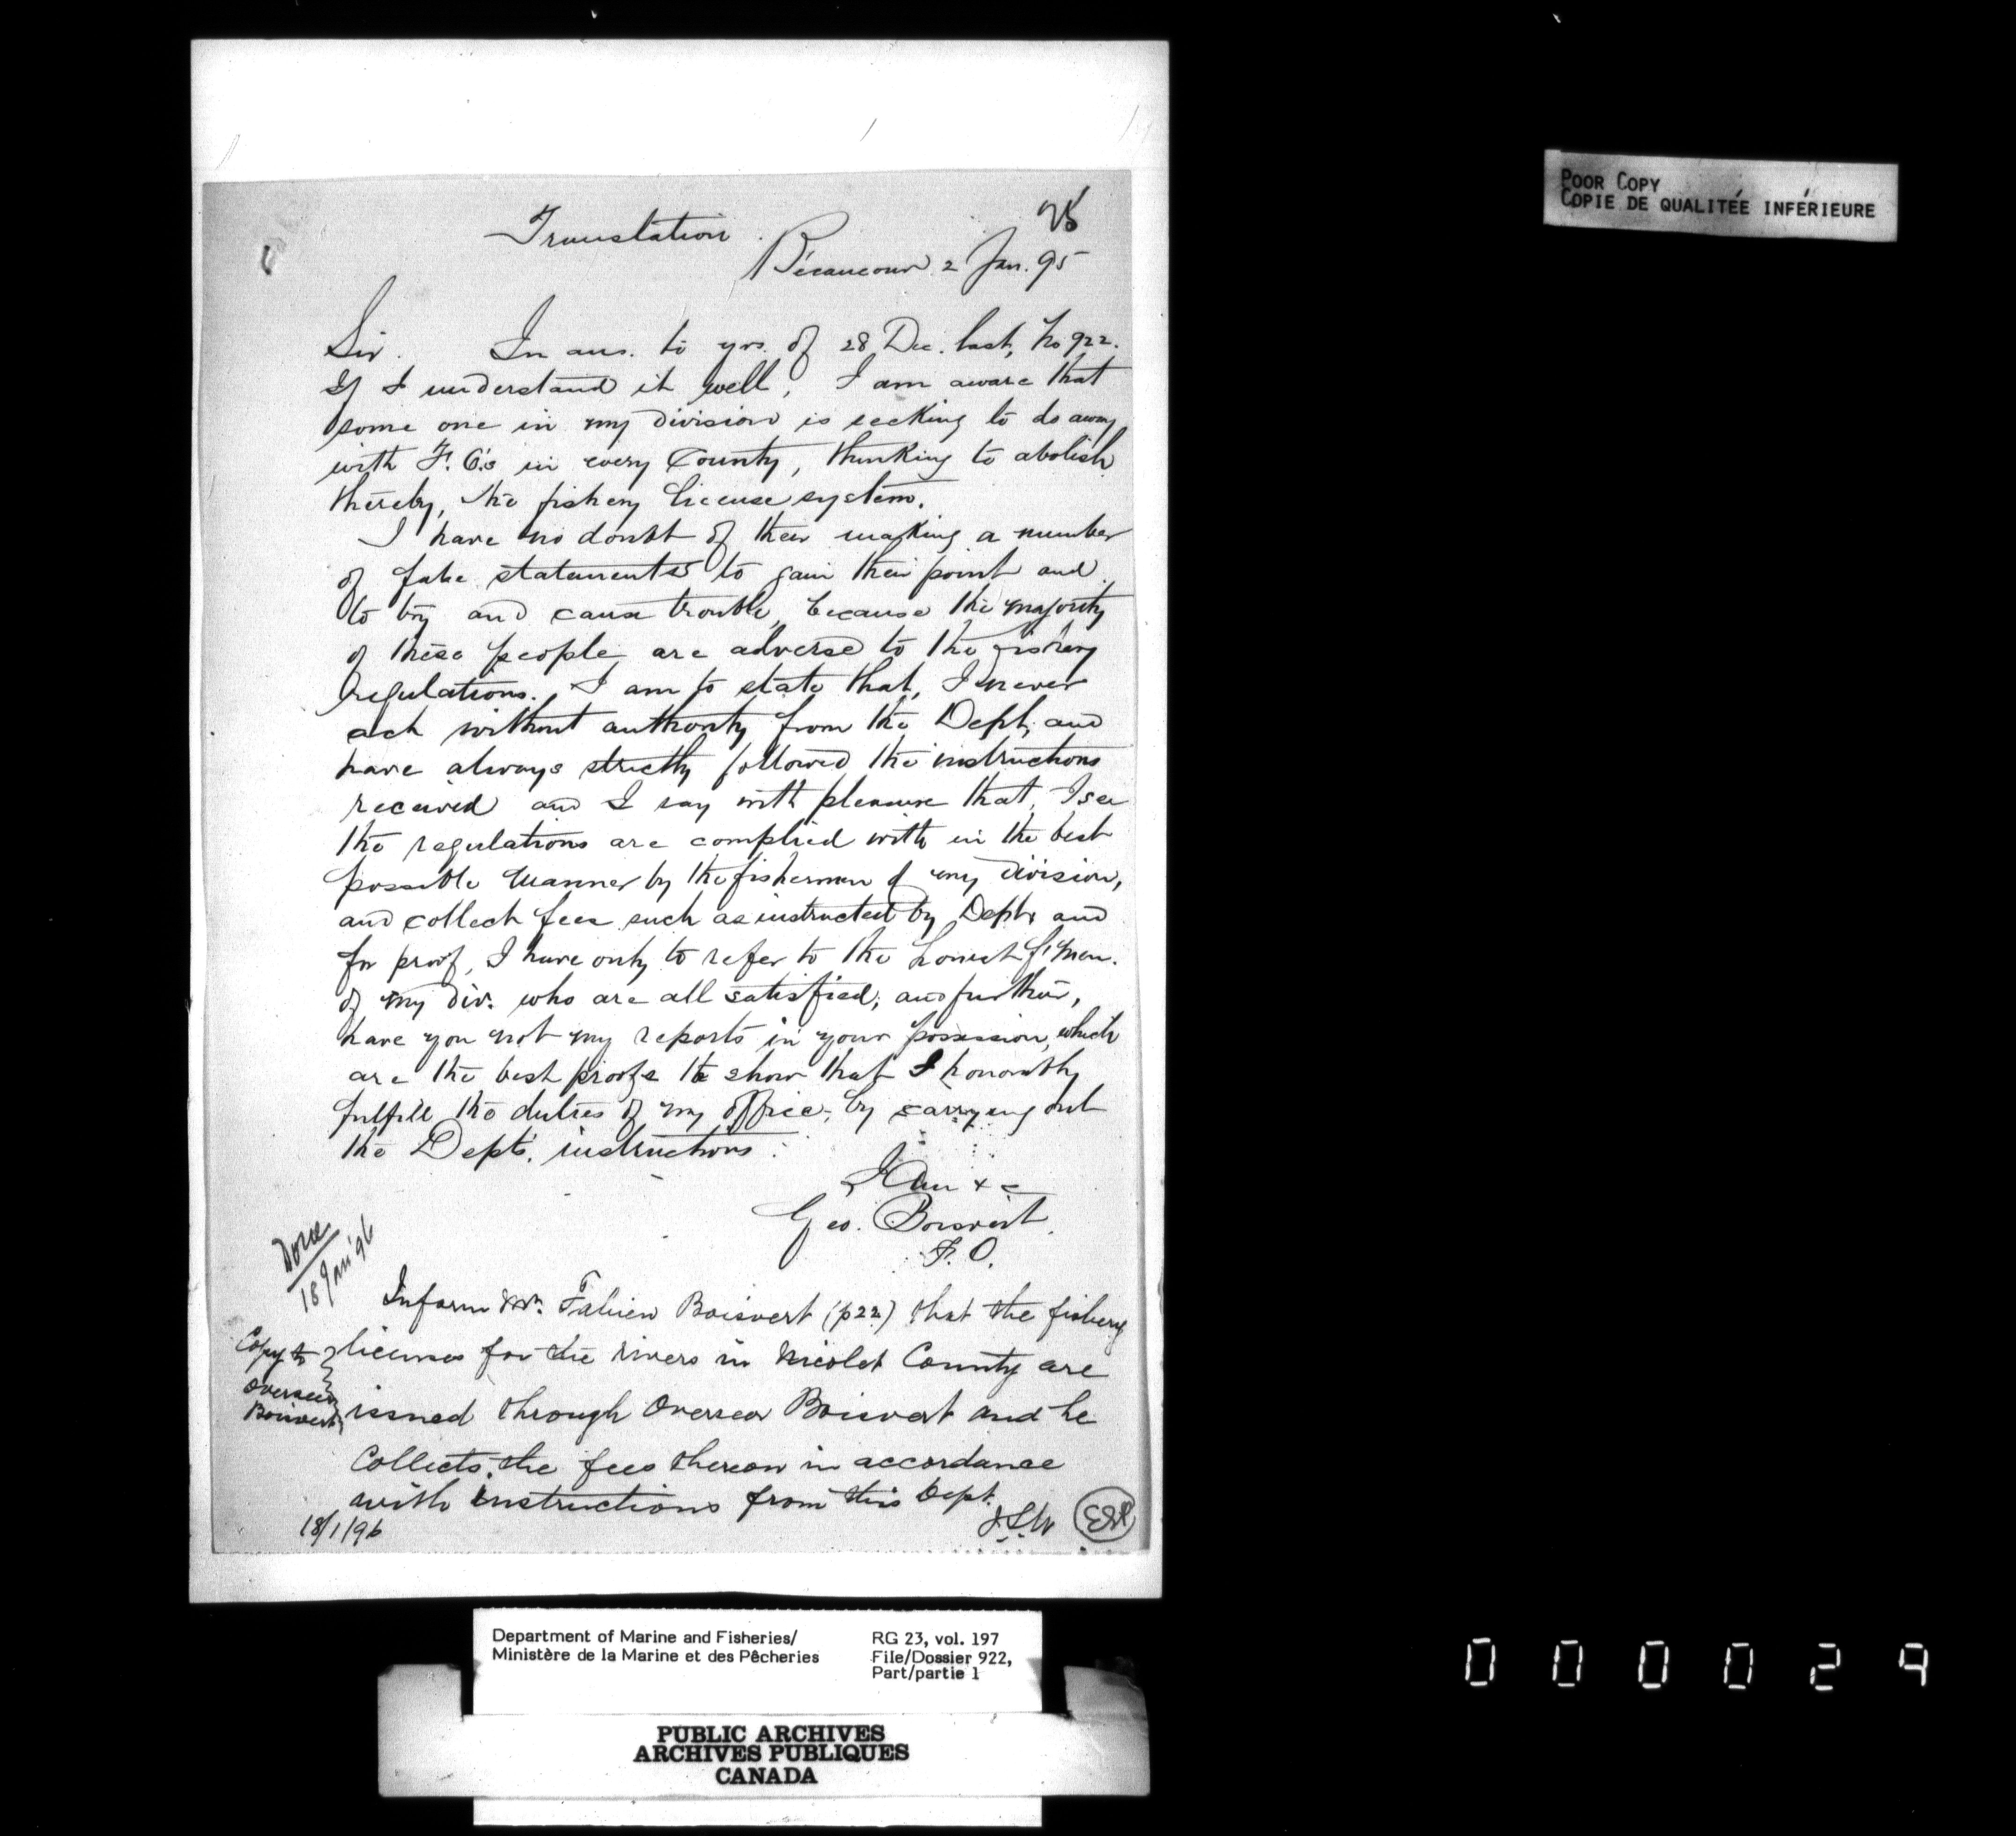 POOR COPY
COPIE DE QUALITÉE INFÉRIEURE
25
Translation.
Bécancour 2 Jan. 95
Sir. In ans. to yrs. of 28 Dec. last, No 922.
If I understand it well, I am aware that
some one in my division is seeking to do away
with F. O.'s in every County, thinking to abolish
thereby, the fishery license system.
I have no doubt of their making a number
of false statements to gain their point and
to try and cause trouble, because the majority
of these people are adverse to the fishery
regulations. I am to state that, I never
act without authority from the Dept, and
have always strictly followed the instructions
received and I say with pleasure that, I see
the regulations are complied with in the best
possible manner by the fishermen of my division,
and collect fees such as instructed by Dept, and
for proof, I have only to refer to the honest f'men.
of my div. who are all satisfied; and further,
have you not my reports in your possession, which
are the best proofs to show that I honorably
fulfill the duties of my office, by carrying out
the Dept's. instructions.
I am &c
Geo. Boisvert.
F. O.
Done
18 Jan' 96
Inform Mr. Fabien Boisvert (p 22) that the fishery
Copy to
Overseer
Boisvert
licenses for the rivers in Nicolet County are
issued through Overseer Boisvert and he
Collects the fees thereon in accordance
with instructions from this Dept.
18/1/96
Department of Marine and Fisheries/
Ministère de la Marine et des Pêcheries
RG 23, vol. 197
File/Dossier 922,
Part/partie 1
PUBLIC ARCHIVES
ARCHIVES PUBLIQUES
CANADA
000029